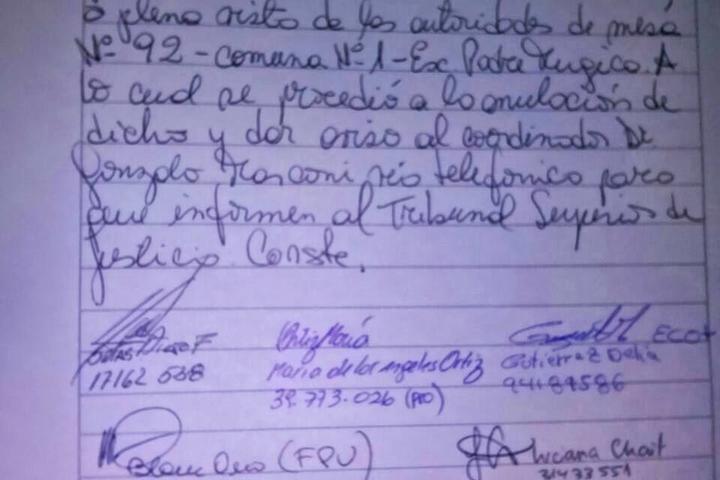 o pleno visto de las autoridades de mesa
Nº 92 - comuna Nº 1 - Ex Padre Mugica. A
lo cual se procedió a la anulación de
dicho y dar aviso al coordinador Dr
Gonzalo Marconi vía telefónico para
que informen al Tribunal Superior de
Justicia. Conste.
Ortiz María
ECO+
Salas Diego F
María de los angeles Ortiz
Gutierrez Delia
17162 538
39.773.026 (PRO)
94189586
(FPV)
Luciana Chait
31433551